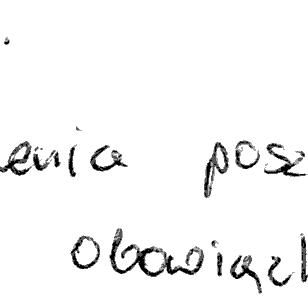 enia posz
obowiązk